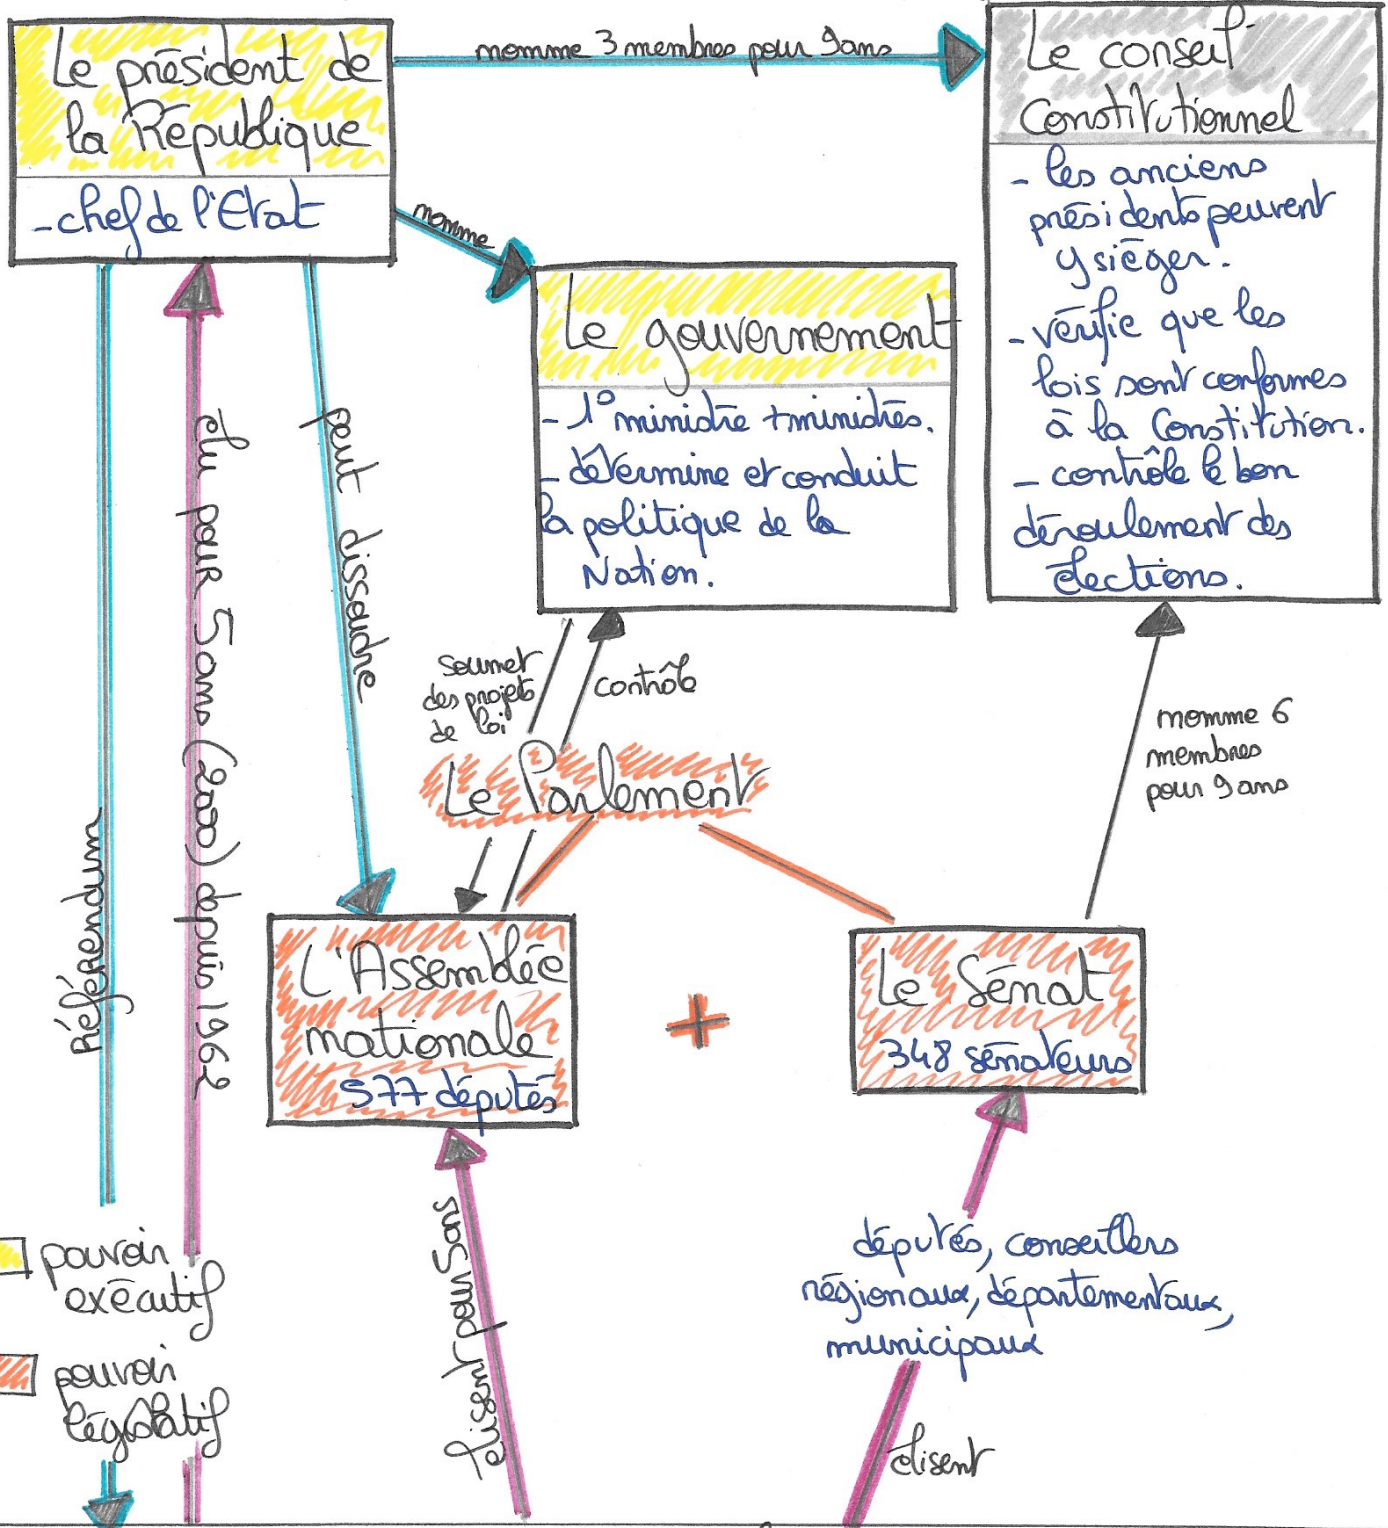 Le président de
la République
- chef de l'Etat
nomme 3 membres pour 9 ans
Le conseil
Constitutionnel
- les anciens
présidents peuvent
y siéger.
- vérifie que les
lois sont conformes
à la Constitution.
- contrôle le bon
déroulement des
élections.
nomme
Le gouvernement
- 1° ministre + ministres.
- détermine et conduit
la politique de la
Nation.
Référendum
élu pour 5 ans (2000) depuis 1962
peut dissoudre
soumet
des projets
de loi
contrôle
nomme 6
membres
pour 9 ans
Le Parlement
L'Assemblée
nationale
577 députés
+
Le Sénat
348 sénateurs
élisent pour 5 ans
députés, conseillers
régionaux, départementaux,
municipaux
élisent
pouvoir
exécutif
pouvoir
législatif